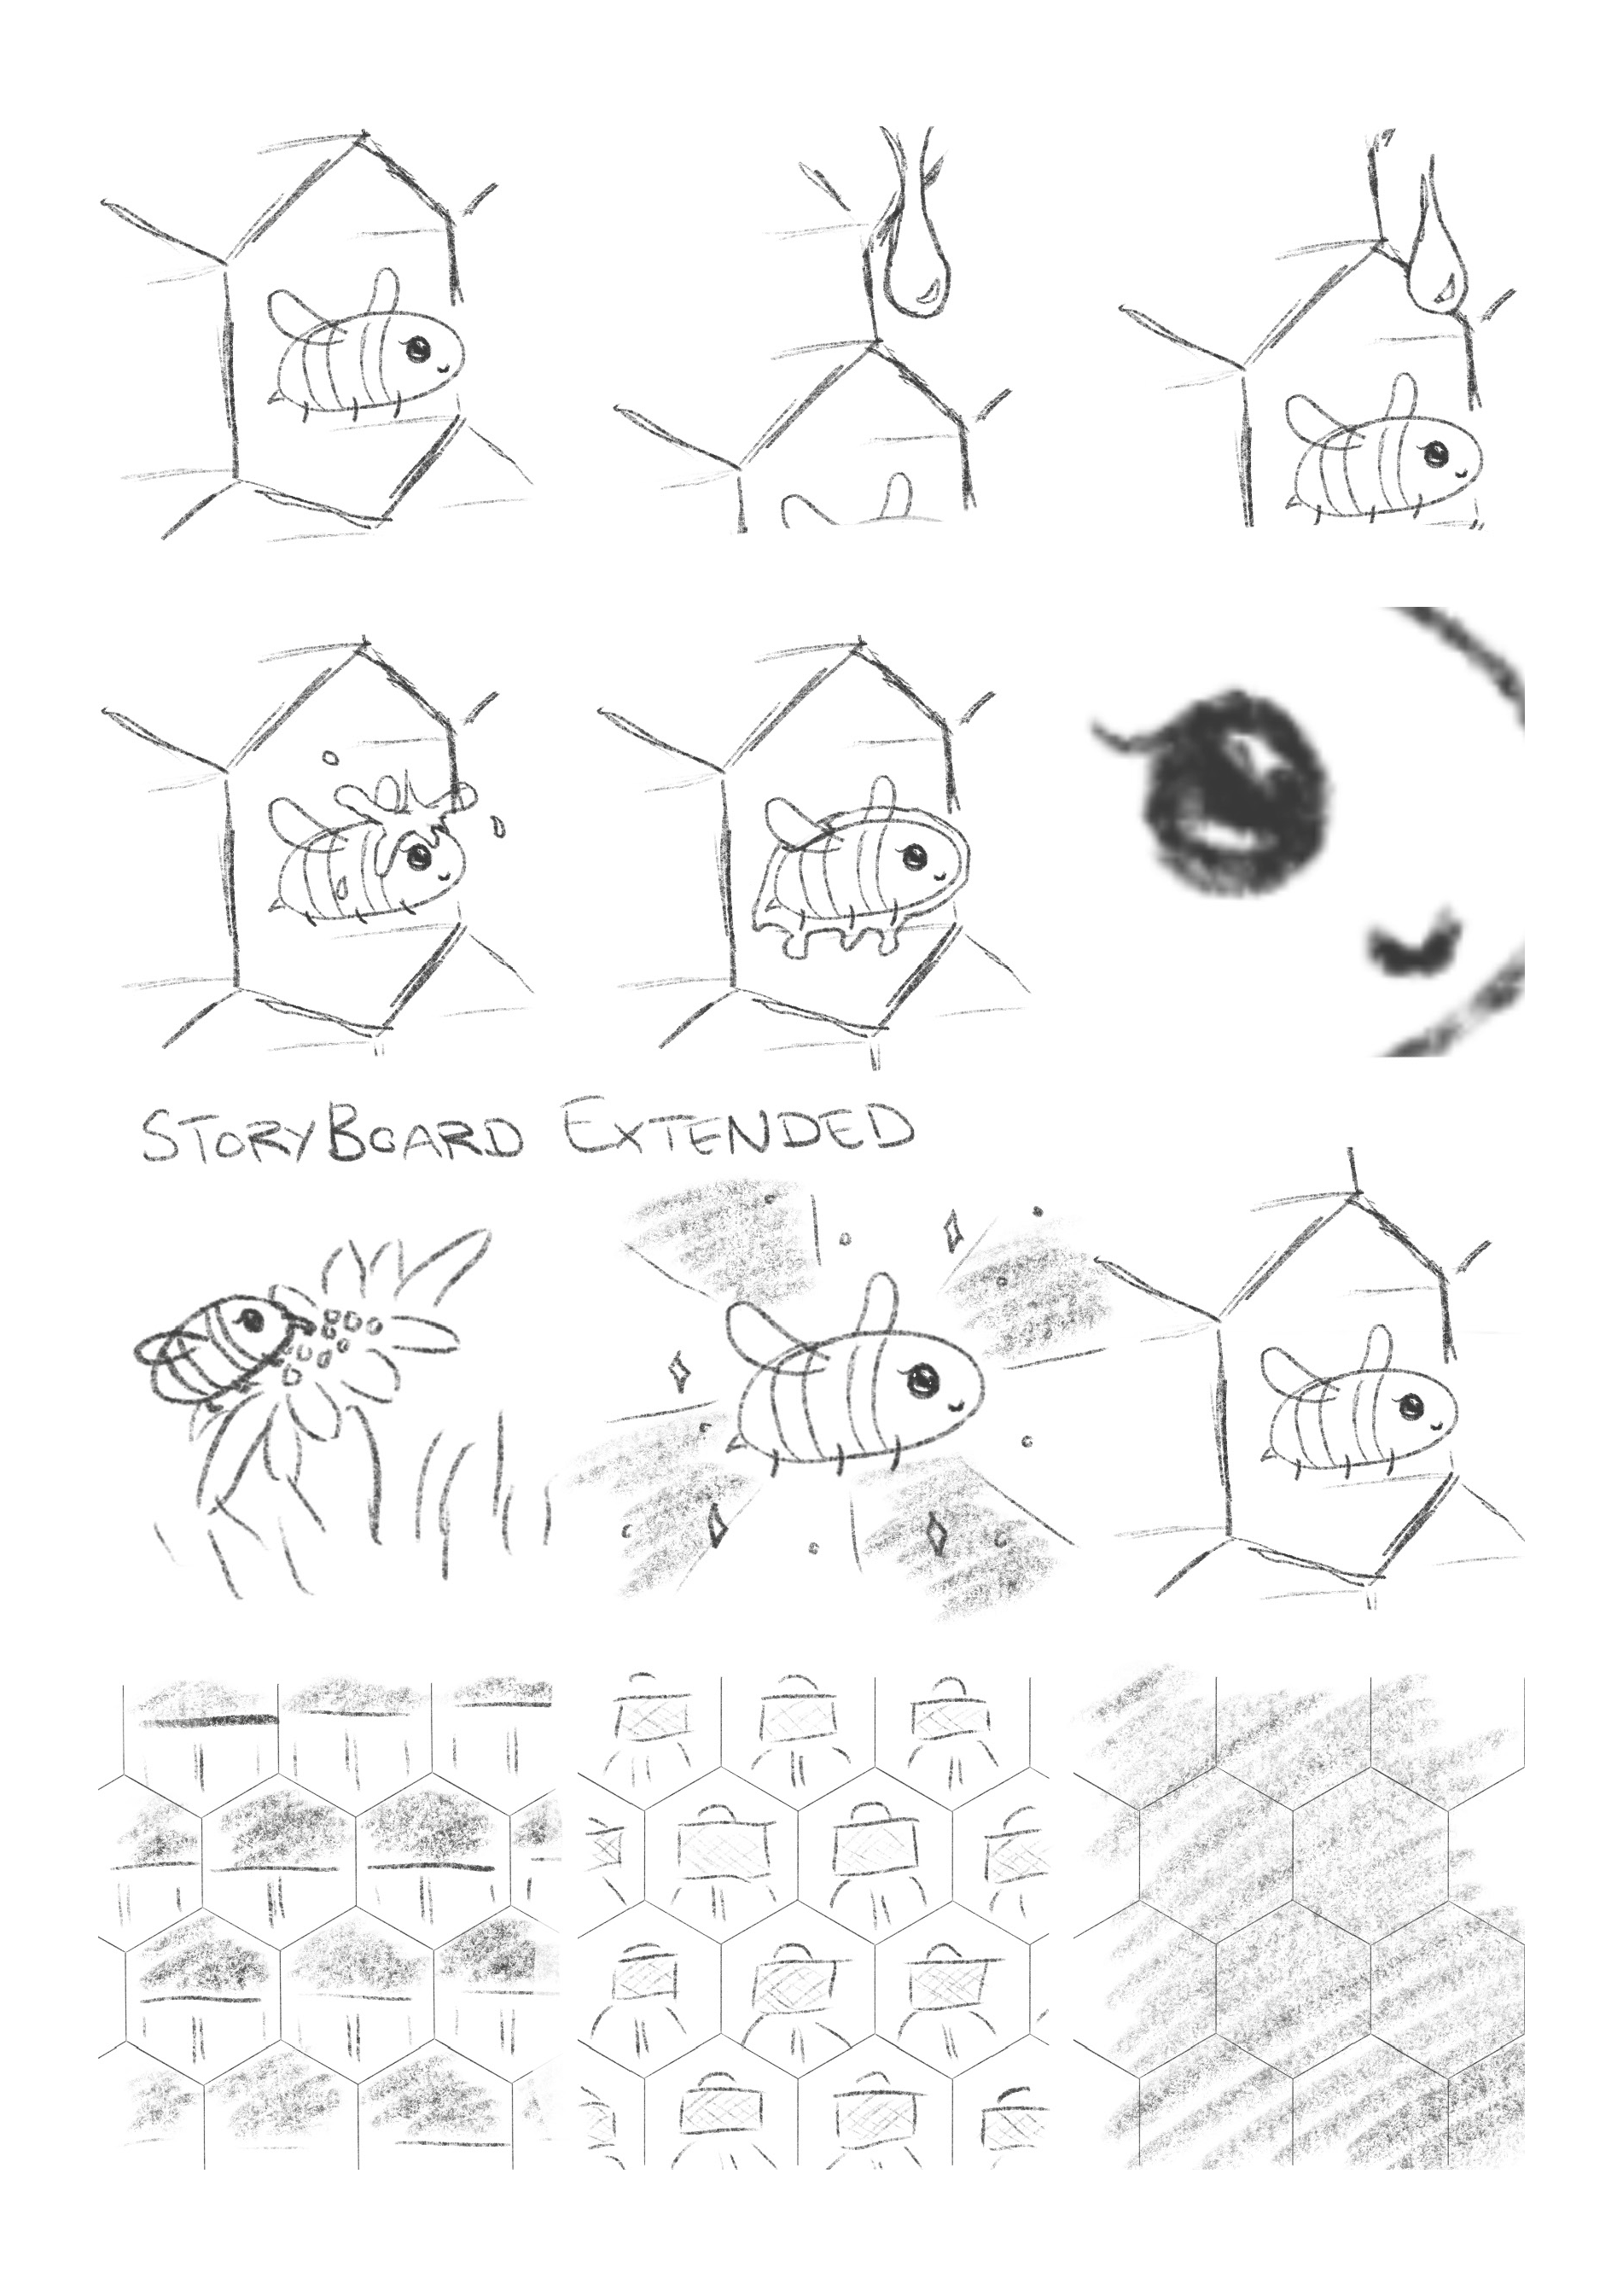 STORYBOARD EXTENDED